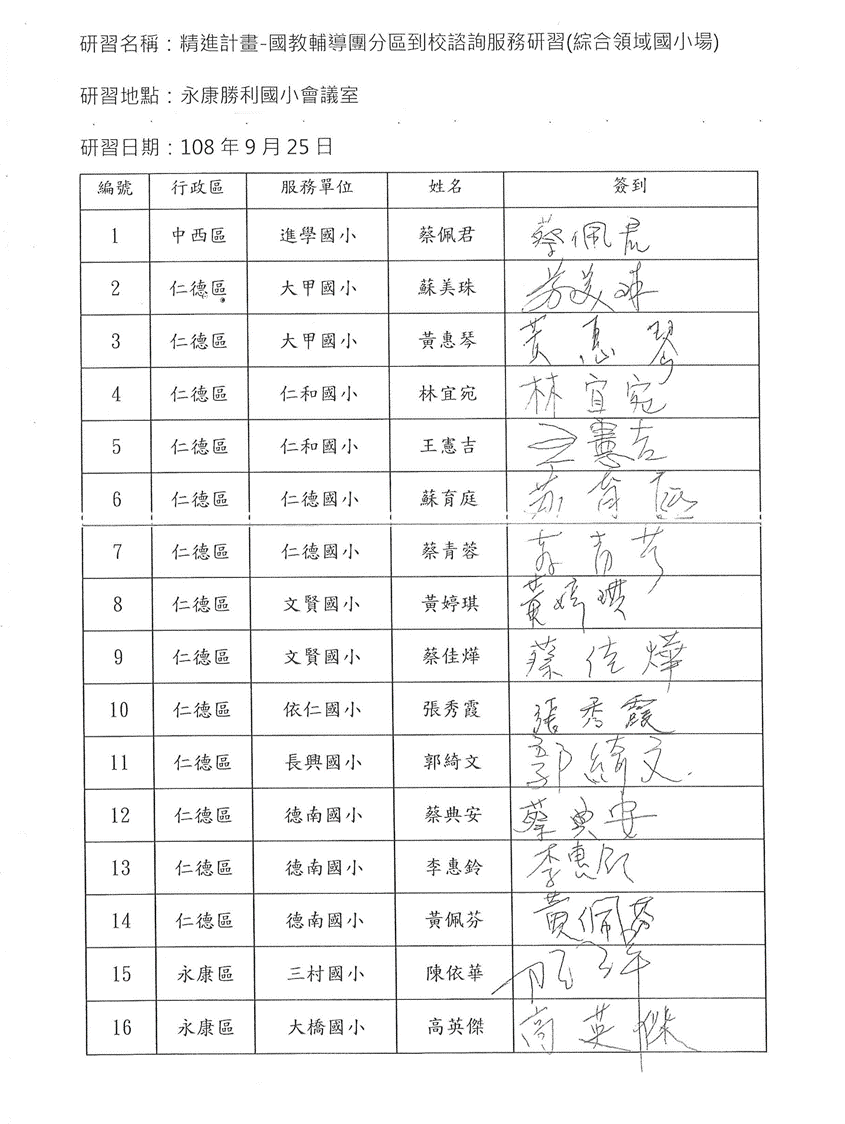 研習名稱：精進計畫-國教輔導團分區到校諮詢服務研習(綜合領域國小場)
研習地點：永康勝利國小會議室
研習日期：108 年 9 月 25 日
編號 行政區 服務單位 姓名 簽到
1 中西區 進學國小 蔡佩君 蔡佩君
2 仁德區 大甲國小 蘇美珠 苏美珠
3 仁德區 大甲國小 黃惠琴 黃惠琴
4 仁德區 仁和國小 林宜宛 林宜宛
5 仁德區 仁和國小 王憲吉 王憲吉
6 仁德區 仁德國小 蘇育庭 育庭
7 仁德區 仁德國小 蔡青蓉 青
8 仁德區 文賢國小 黃婷琪 黃婷琪
9 仁德區 文賢國小 蔡佳燁 蔡佳燁
10 仁德區 依仁國小 張秀霞 張秀霞
11 仁德區 長興國小 郭綺文 郭綺文
12 仁德區 德南國小 蔡典安 蔡典安
13 仁德區 德南國小 李惠鈴 李惠
14 仁德區 德南國小 黃佩芬 黃佩芬
15 永康區 三村國小 陳依華
16 永康區 大橋國小 高英傑 高英傑